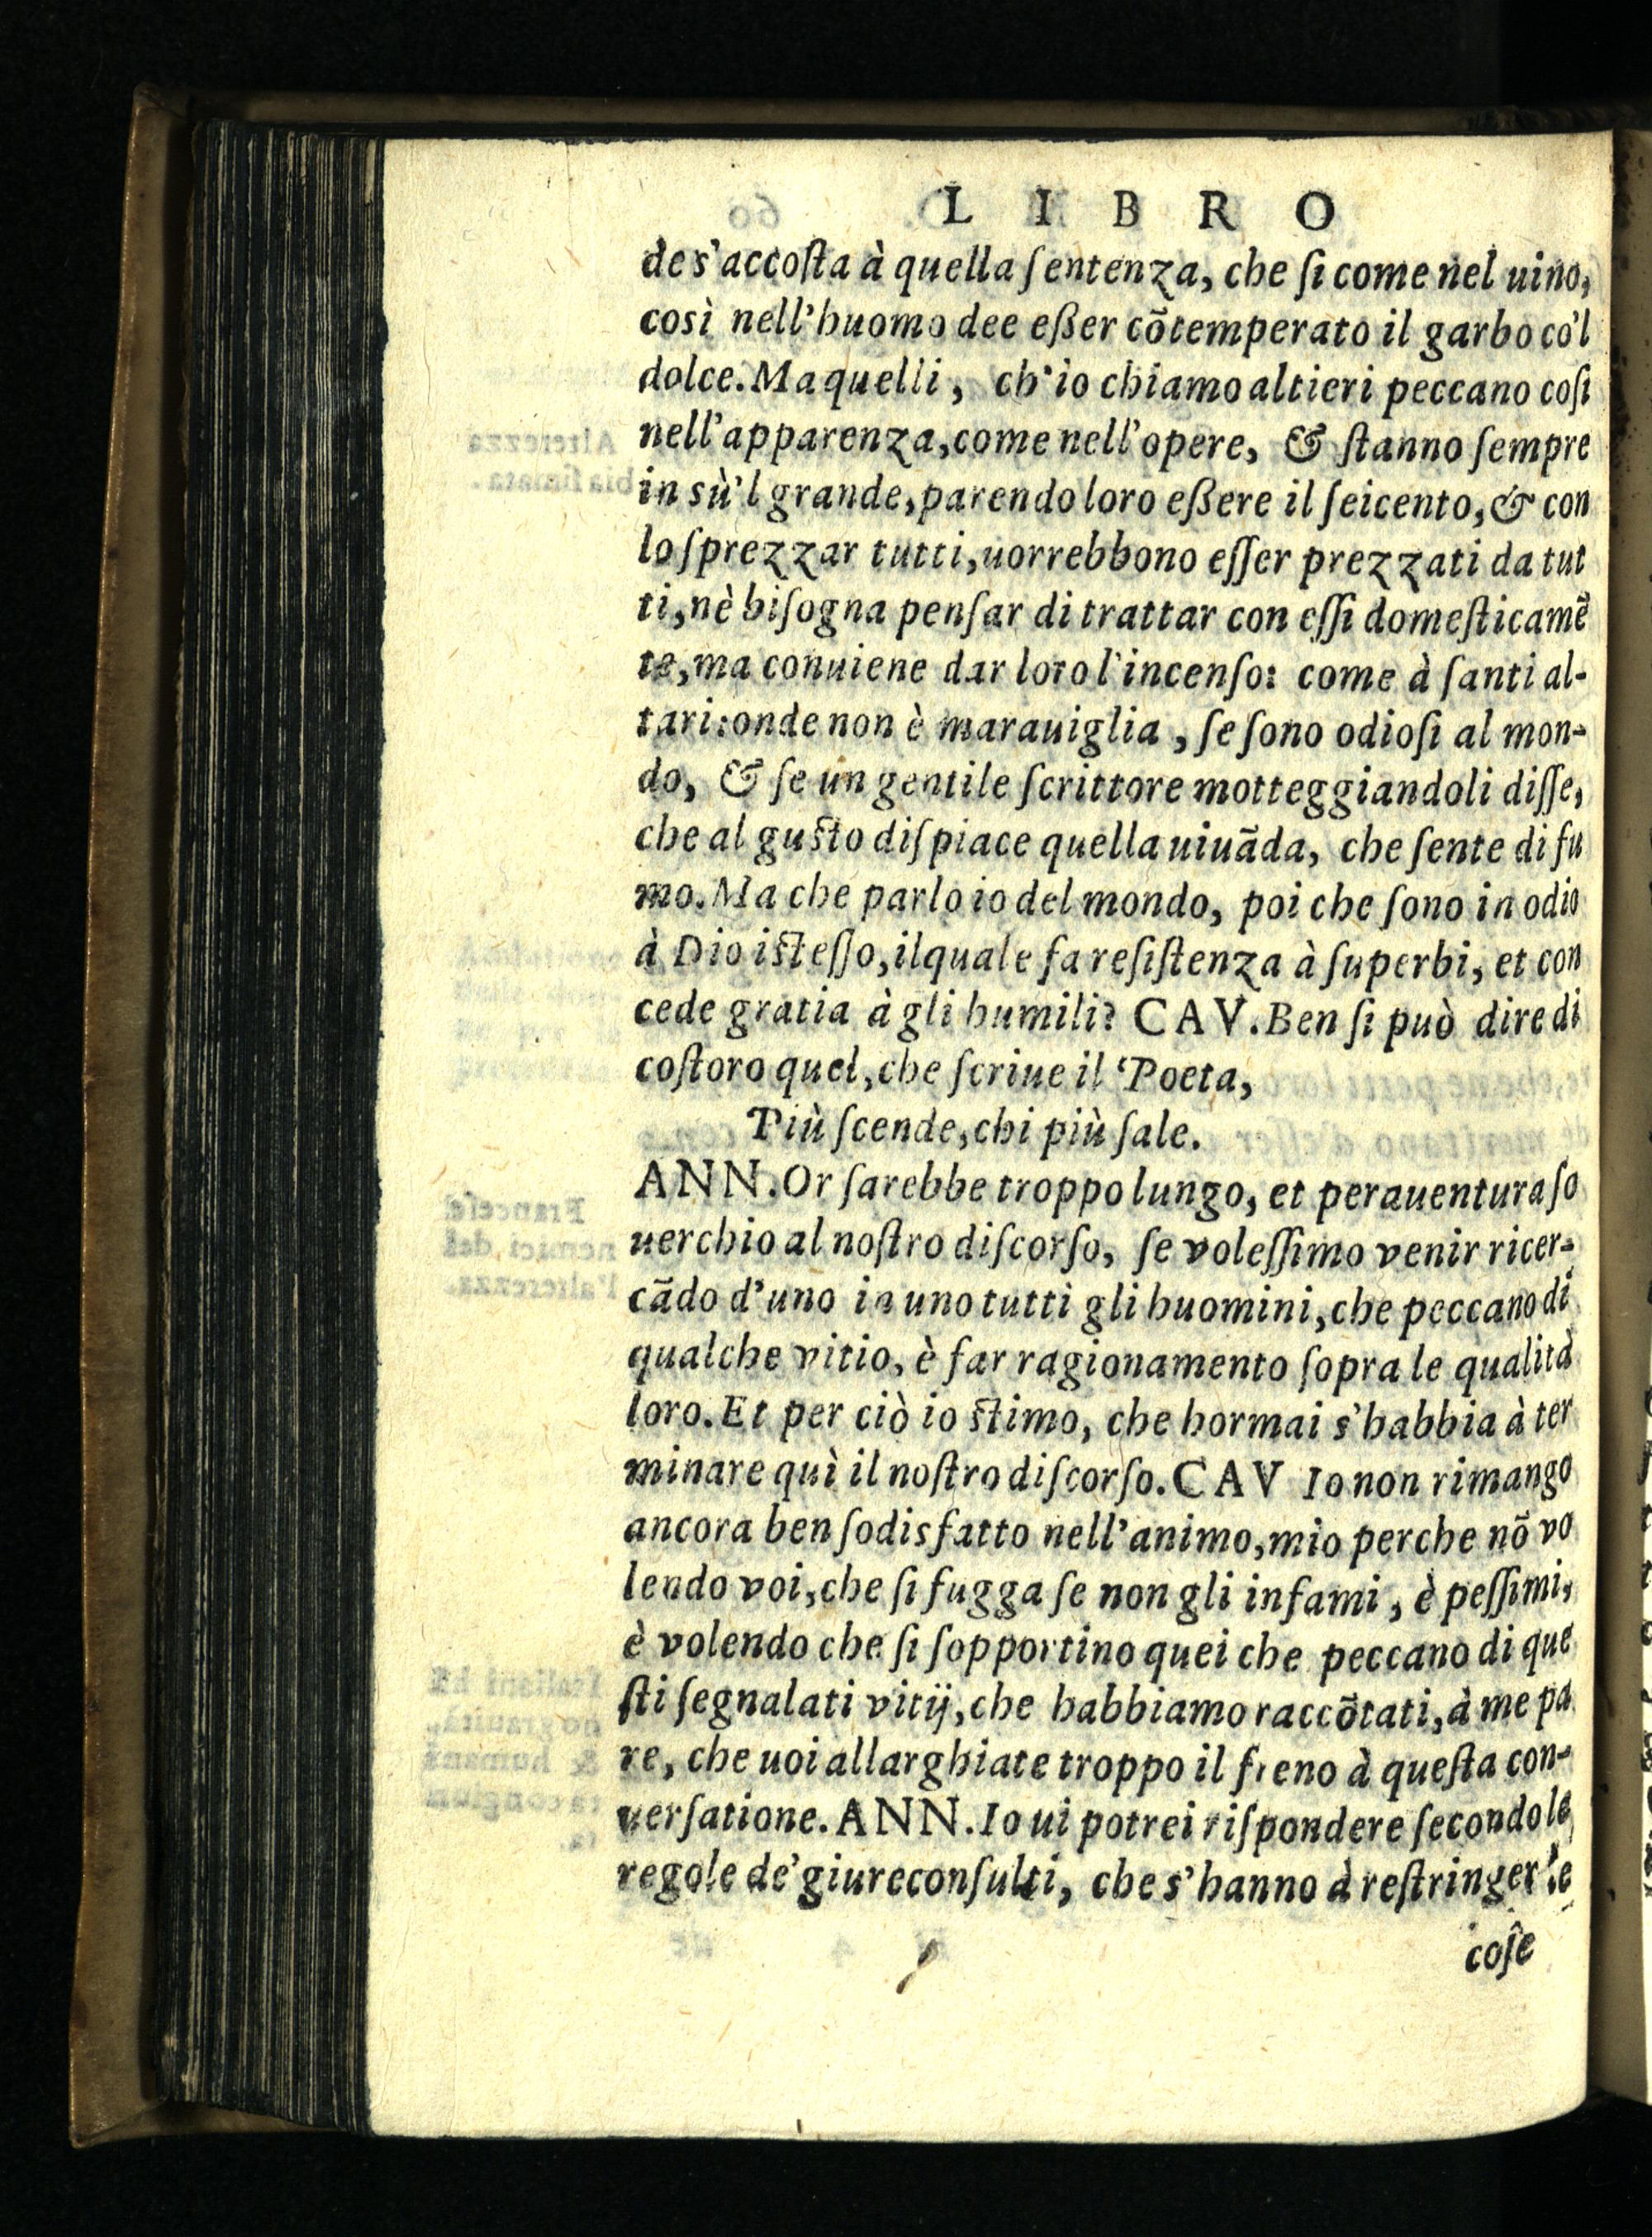 LIBRO
de s'accoſta à quella ſentenza, che ſi come nel uino,
così nell'huomo dee eßer cõtemperato il garbo co'l
dolce. Ma quelli, ch'io chiamo altieri peccano coſi
nell'apparenza, come nell'opere, & ſtanno ſempre
in sù'l grande, parendo loro eßere il ſeicento, & con
lo ſprezzar tutti, uorrebbono eſſer prezzati da tut
ti, nè biſogna penſar di trattar con eſſi domeſticamẽ
te, ma conuiene dar loro l'incenſo: come à ſanti al-
tari: onde non è marauiglia, ſe ſono odioſi al mon-
do, & ſe un gentile ſcrittore motteggiandoli diſſe,
che al guſto diſpiace quella uiuãda, che ſente di fu
mo. Ma che parlo io del mondo, poi che ſono in odio
à Dio iſteſſo, ilquale fa reſiſtenza à ſuperbi, et con
cede gratia à gli humili? CAV. Ben ſi può dire di
coſtoro quel, che ſcriue il Poeta,
Più ſcende, chi più ſale.
ANN. Or ſarebbe troppo lungo, et perauentura ſo
uerchio al noſtro diſcorſo, ſe voleſſimo venir ricer-
cãdo d'uno in uno tutti gli huomini, che peccano di
qualche vitio, è far ragionamento ſopra le qualità
loro. Et per ciò io ſtimo, che hormai s'habbia à ter
minare quì il noſtro diſcorſo. CAV Io non rimango
ancora ben ſodisfatto nell'animo, mio perche nõ vo
lendo voi, che ſi fugga ſe non gli infami, è peſſimi,
è volendo che ſi ſopportino quei che peccano di que
ſti ſegnalati vitij, che habbiamo raccõtati, à me pa
re, che uoi allarghiate troppo il freno à queſta con-
uerſatione. ANN. Io ui potrei riſpondere ſecondo le
regole de' giureconſulti, che s'hanno à reſtringer le
coſe